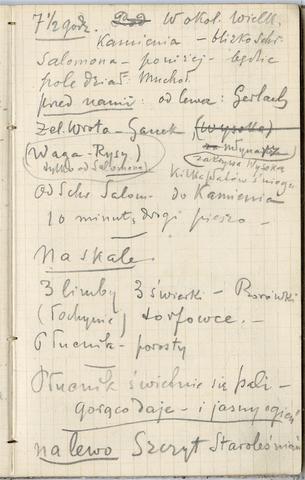 7 1/2 godz. Pod W okol. Wielk.
Kamienia – blizko Schr.
Salomona – poniżej – będzie
pole dział: Muchoł.
przed nami: od lewa: Gerlach
Żel. Wrota – Ganek, (Wysoka)
(Waga – Rysy) za Młyna
tylko od Salomona) zakrywa Wysoką
Kilka płatów śniegu
Od Sch. Salom. do Kamienia
10 minut drogi pieszo –
Na skale
3 limby 3 świerki – Borówki
(Łochynie) torfowce. –
Płucnik – porosty
Płucnik świetnie się pali –
gorąco daje – i jasny ogień
na lewo Szczyt Staroleśniań